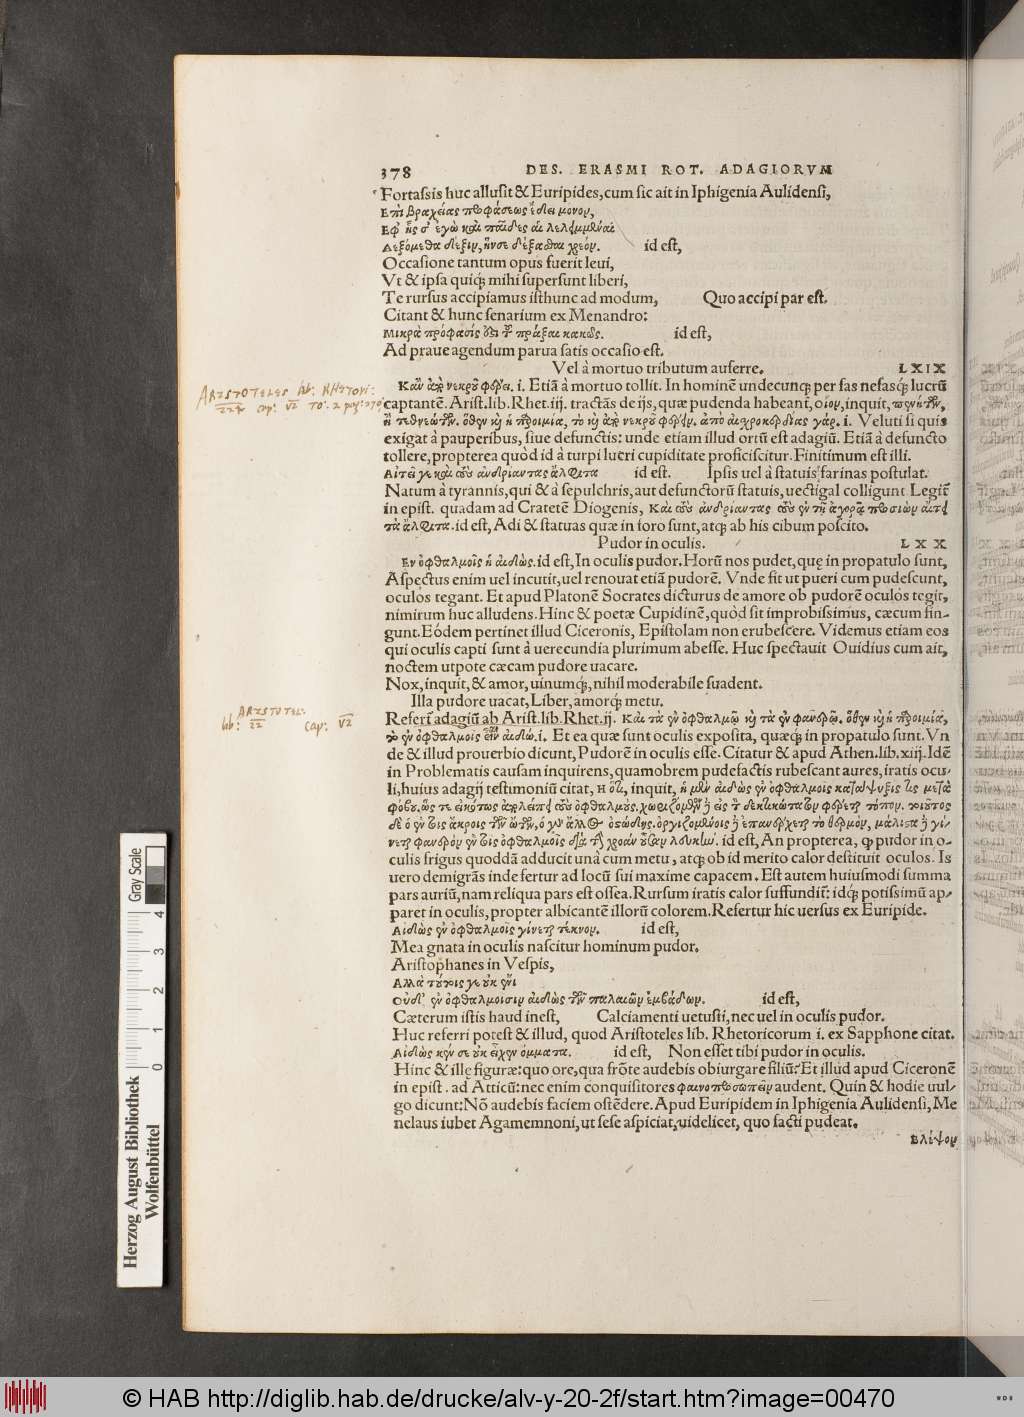 378 DES. ERASMI ROT. ADAGIORVM
Fortassis huc allusit & Euripides, cum sic ait in Iphigenia Aulidensi,
Επὶ βραχείας προφάσεως ἔδει μονον,
Εφ᾽ ἧς σ᾽ ἐγὼ καὶ παῖδες αἱ λελειμμέναι
Δεξόμεθα δέξιν, ἥν σε δέξασθαι χρεόν. id est,
Occasione tantum opus fuerit leui,
Vt & ipsa quiq́; mihi supersunt liberi,
Te rursus accipiamus isthunc ad modum, Quo accipi par est.
Citant & hunc senarium ex Menandro:
Μικρὰ πρόφασίς ὅζι τ πρᾶξαι κακῶς. id est,
Ad praue agendum parua satis occasio est.
Vel à mortuo tributum auferre. LXIX
Κᾂν ἀπὸ νεκροῦ φέρει. i. Etiā à mortuo tollit. In hominē undecunq; per fas nefasq́; lucrū
captantē. Arist. lib. Rhet. iij. tractās de ijs, quæ pudenda habeant, οἷον, inquit,
ἢ τεθνεώτων. ὅθεν καὶ ἡ παροιμία, τὸ καὶ ἀπὸ νεκροῦ φέρειν. ἀπὸ αἰχροκερδίας γάρ. i. Veluti si quis
exigat à pauperibus, siue defunctis: unde etiam illud ortū est adagiū. Etiā à defuncto
tollere, propterea quòd id à turpi lucri cupiditate proficiscitur. Finitimum est illi.
Αἰτεῖ γε καὶ τοὺς ἀνδριαντας ἄλφιτα id est. Ipsis uel à statuis farinas postulat.
Natum à tyrannis, qui & à sepulchris, aut defunctorū statuis, uectigal colligunt Legit̄
in epist. quadam ad Cratetē Diogenis, Και τοὺς ἀνδριαντας τοὺς ἐν τῇ ἀγορᾷ προσιὼν αἴτει
τὰ ἄλφιτα. id est, Adi & statuas quæ in foro sunt, atq; ab his cibum poscito.
Pudor in oculis. LXX
Εν ὀφθαλμοῖς ἡ αἰδὼς. id est, In oculis pudor. Horū nos pudet, quę in propatulo sunt,
Aspectus enim uel incutit, uel renouat etiā pudorē. Vnde fit ut pueri cum pudescunt,
oculos tegant. Et apud Platonē Socrates dicturus de amore ob pudorē oculos tegit,
nimirum huc alludens. Hinc & poetæ Cupidinē, quòd sit improbissimus, cæcum fin-
gunt. Eódem pertinet illud Ciceronis, Epistolam non erubescere. Videmus etiam eos
qui oculis capti sunt à uerecundia plurimum abesse. Huc spectauit Ouidius cum ait,
noctem utpote cæcam pudore uacare.
Nox, inquit, & amor, uinumq́;, nihil moderabile suadent.
Illa pudore uacat, Liber, amorq́; metu.
Refert̄ adagiū ab Arist. lib. Rhet. ij. Και τὰ ἐν ὀφθαλμῷ καὶ τὰ ἐν φανερῷ. ὅθεν καὶ ἡ παροιμία,
τὸ ἐν ὀφθαλμοῖς εἶναι αἰδῶ. i. Et ea quæ sunt oculis exposita, quæq́; in propatulo sunt. Vn
de & illud prouerbio dicunt, Pudorē in oculis esse. Citatur & apud Athen. lib. xiij. Idē
in Problematis causam inquirens, quamobrem pudefactis rubescant aures, iratis ocu-
li, huius adagij testimoniū citat, inquit, ἡ μὲν αἰδὼς ἐν ὀφθαλμοῖς κατάψυξίς τις μετὰ
φόβου. ὥς τε εἰκότως ἀπολείπει τοὺς ὀφθαλμούς. χωριζομένη
δὲ ὁ ἐν τοῖς ἄκροις τῶν ὤτων, ὁ γὰρ ἄλλος ὀστώδης. ὀργιζομένοις
id est, An propterea, φ pudor in o-
culis frigus quoddā adducit unà cum metu, atq; ob id merito calor destituit oculos. Is
uero demigrās inde fertur ad locū sui maxime capacem. Est autem huiusmodi summa
pars auriū, nam reliqua pars est ossea. Rursum iratis calor suffundit̄: idq́; potissimū ap-
paret in oculis, propter albicantē illorū colorem. Refertur hic uersus ex Euripide.
Αιδὼς ἐν ὀφθαλμοῖς γίνεται τέκνον. id est,
Mea gnata in oculis nascitur hominum pudor.
Aristophanes in Vespis,
Αλλὰ τούτοις γε οὐκ ἔνι
Οὐδ᾽ ἐν ὀφθαλμοῖσιν αἰδὼς τῶν παλαιῶν ἐμβάδων. id est,
Cæterum istis haud inest, Calciamenti uetusti, nec uel in oculis pudor.
Huc referri potest & illud, quod Aristoteles lib. Rhetoricorum i. ex Sapphone citat.
Αἰδὼς κέν σε οὐκ εἶχεν ὄμματα. id est, Non esset tibi pudor in oculis.
Hinc & illę figuræ: quo ore, qua frōte audebis obiurgare filiū? Et illud apud Ciceronē
in epist. ad Atticū: nec enim conquisitores φαινοπροσωπεῖν audent. Quin & hodie uul-
go dicunt: Nō audebis faciem ostēdere. Apud Euripidem in Iphigenia Aulidensi, Me
nelaus iubet Agamemnoni, ut sese aspiciat, uidelicet, quo facti pudeat.
Βλέψον
ARISTOTELES lib: RHETORI:
cap: VI
ARISTOTEL:
lib: cap: VI
Herzog August Bibliothek
Wolfenbüttel
Gray Scale
0 1 2 3 4
© HAB http://diglib.hab.de/drucke/alv-y-20-2f/start.htm?image=00470